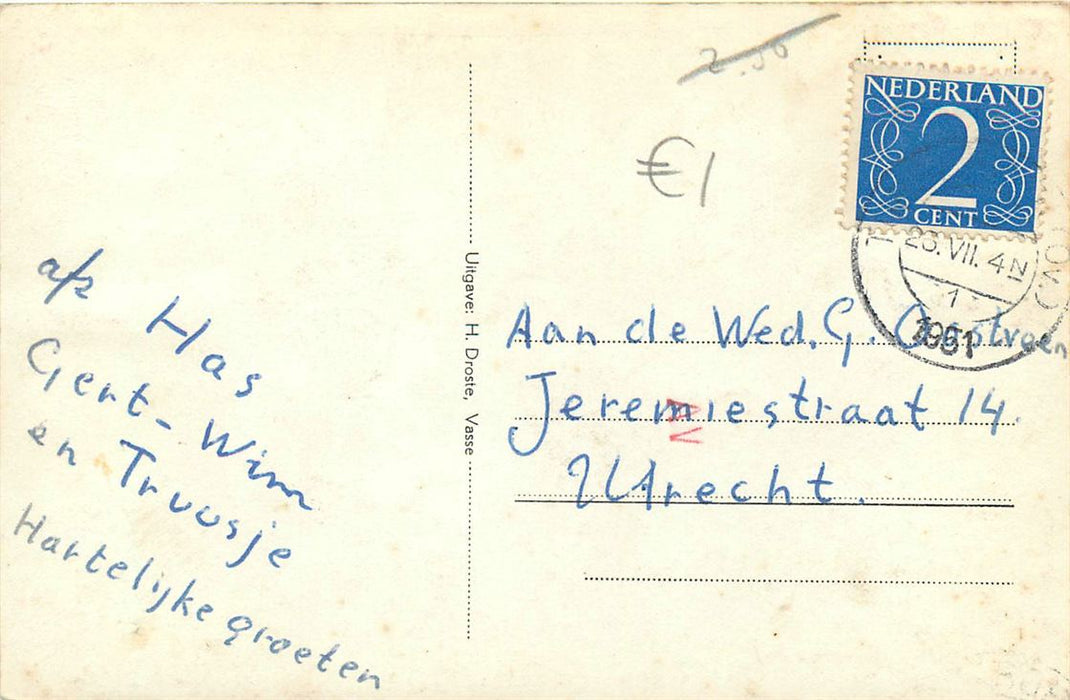 2.50
€1
NEDERLAND
2
CENT
23.VII.4 N
1
1951
afz Has
Gert-Wim
en Truusje
Hartelijke groeten
Uitgave: H. Droste, Vasse
Aan de Wed. G.
Jeremiestraat 14.
Utrecht.
AV